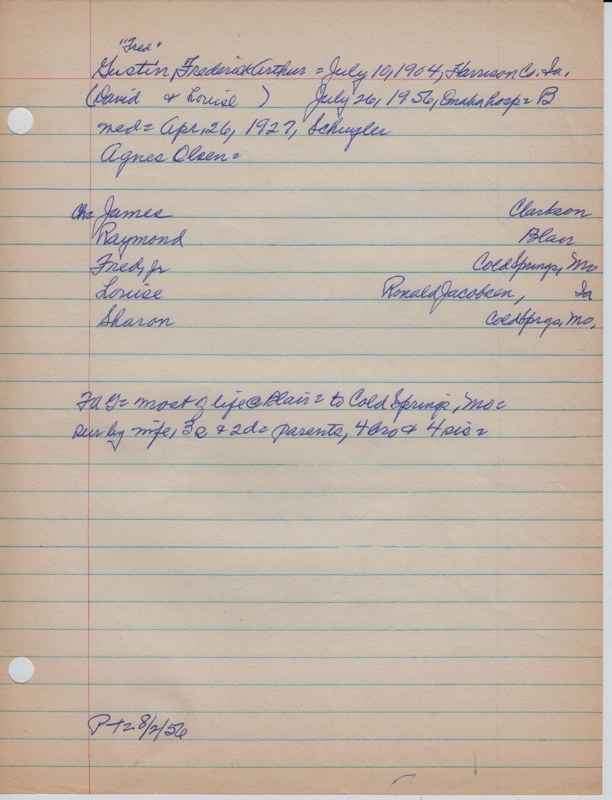 "Fred"
Gustin, Frederick Arthur = July 10, 1904, Harrison Co. Ia.
(David & Louise ) July 26, 1956, Omaha hosp = B
med = Apr. 26, 1927, Schuyler
Agnes Olsen =
Ch: James Clarkson
Raymond Blair
Fred, Jr Cold Springs, Mo
Louise Ronald Jacobsen, Ia
Sharon Cold Sprgs, Mo.
FAG = most of life @ Blair = to Cold Springs, Mo =
sur by wife, 3s & 2d = parents, 4 bro & 4 sis =
P-T 2 8/2/56